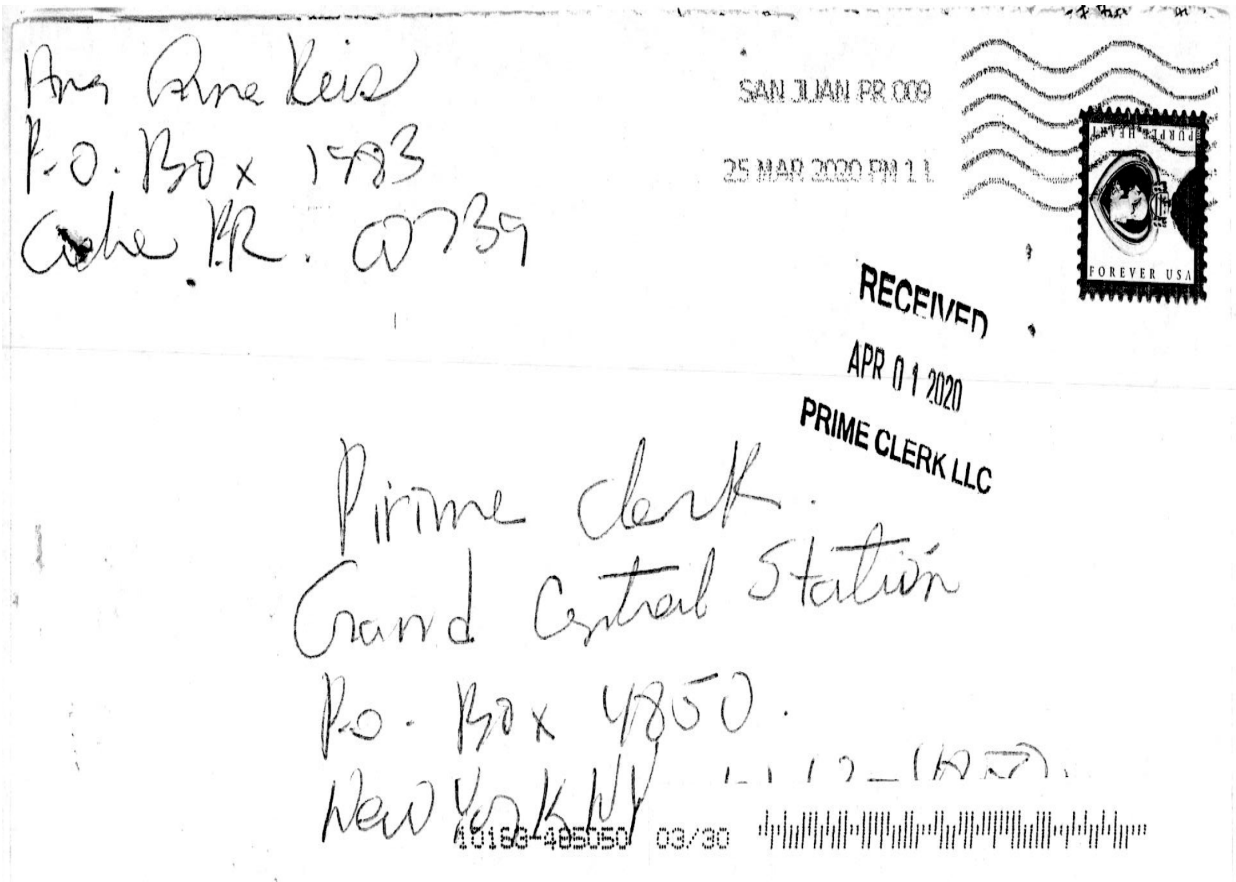 Ana
P.O. Box
P.R. 00739
SAN JUAN PR 009
25 MAR 2020 PM 1 L
PURPLE HEART
FOREVER USA
RECEIVED
APR 01 2020
PRIME CLERK LLC
Pirime Clerk.
Grand Central Statión
P.O. Box 4850.
New York NY
10163-485050 03/30